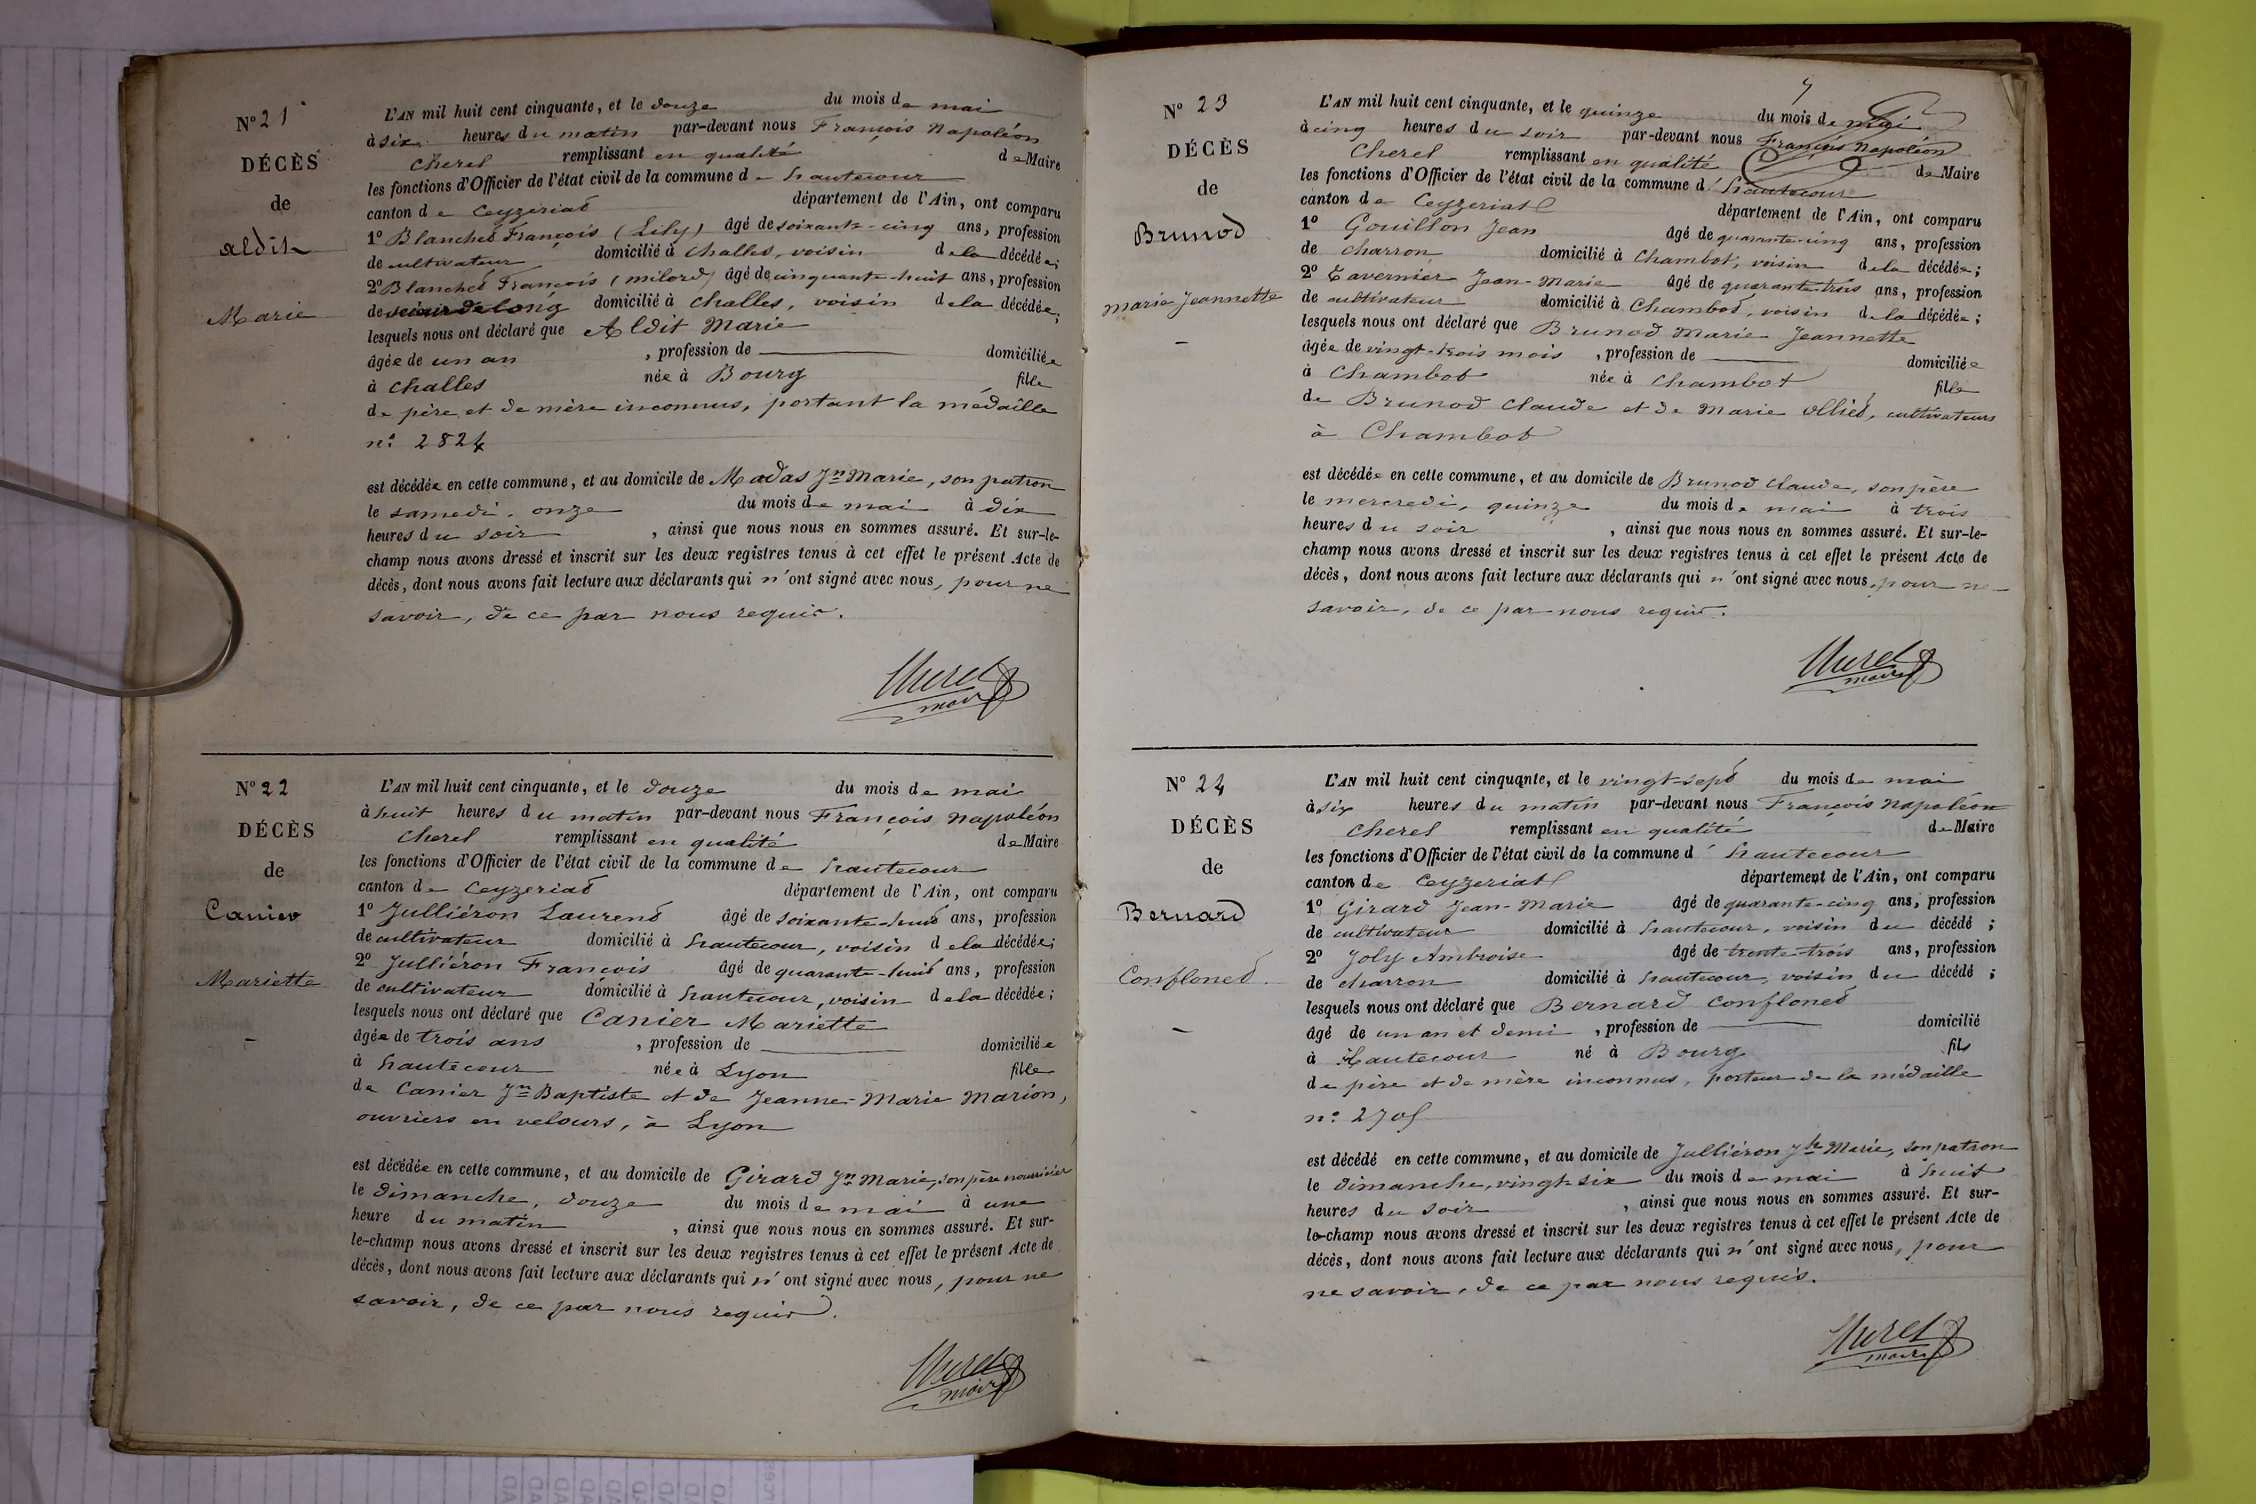 N° 21
DÉCÈS
de
Aldit
Marie
L'AN mil huit cent cinquante, et le douze du mois de mai
à six heures du matin par-devant nous François Napoléon
Cherel remplissant en qualité de Maire
les fonctions d'Officier de l'état civil de la commune de hautecour
canton de Ceyzériat département de l'Ain, ont comparu
1° Blanchet François (Lily) âgé de soixante-cinq ans, profession
de cultivateur domicilié à Challes, voisin de la décédée;
2° Blanchet François (milord) âgé de cinquante-huit ans, profession
de scieur de long domicilié à Challes, voisin de la décédée;
lesquels nous ont déclaré que Aldit Marie
âgée de un an , profession de domiciliée
à Challes née à Bourg fille
de père et de mère inconnus, portant la médaille
n° 2824
est décédée en cette commune, et au domicile de Madas Jn Marie, son patron
le samedi, onze du mois de mai à dix
heures du soir , ainsi que nous nous en sommes assuré. Et sur-le-
champ nous avons dressé et inscrit sur les deux registres tenus à cet effet le présent Acte de
décès, dont nous avons fait lecture aux déclarants qui n'ont signé avec nous, pour ne
savoir, de ce par nous requis.
Cherel
maire
N° 22
DÉCÈS
de
Canier
Mariette
L'AN mil huit cent cinquante, et le douze du mois de mai
à huit heures du matin par-devant nous François Napoléon
Cherel remplissant en qualité de Maire
les fonctions d'Officier de l'état civil de la commune de hautecour
canton de Ceyzériat département de l'Ain, ont comparu
1° Julliéron Laurent âgé de soixante-huit ans, profession
de cultivateur domicilié à hautecour, voisin de la décédée;
2° Julliéron François âgé de quarante-huit ans, profession
de cultivateur domicilié à hautecour, voisin de la décédée;
lesquels nous ont déclaré que Canier Mariette
âgée de trois ans , profession de domiciliée
à hautecour née à Lyon fille
de Canier Jn Baptiste et de Jeanne-Marie Marion,
ouvriers en velours, à Lyon
est décédée en cette commune, et au domicile de Girard Jn Marie, son père nourricier
le dimanche, douze du mois de mai à une
heure du matin , ainsi que nous nous en sommes assuré. Et sur-
le-champ nous avons dressé et inscrit sur les deux registres tenus à cet effet le présent Acte de
décès, dont nous avons fait lecture aux déclarants qui n'ont signé avec nous, pour ne
savoir, de ce par nous requis.
Cherel
maire
N° 23
DÉCÈS
de
Brunod
marie Jeannette
L'AN mil huit cent cinquante, et le quinze du mois de mai
à cinq heures du soir par-devant nous François Napoléon
Cherel remplissant en qualité de Maire
les fonctions d'Officier de l'état civil de la commune d'hautecour
canton de Ceyzeriat département de l'Ain, ont comparu
1° Gouillon Jean âgé de quarante-cinq ans, profession
de charron domicilié à Chambot, voisin de la décédée;
2° Tavernier Jean-Marie âgé de quarante-trois ans, profession
de cultivateur domicilié à Chambot, voisin de la décédée;
lesquels nous ont déclaré que Brunod Marie-Jeannette
âgée de vingt-trois mois , profession de domiciliée
à Chambot née à Chambot fille
de Brunod Claude et de Marie Olliet, cultivateurs
à Chambot
est décédée en cette commune, et au domicile de Brunod Claude, son père
le mercredi, quinze du mois de mai à trois
heures du soir , ainsi que nous nous en sommes assuré. Et sur-le-
champ nous avons dressé et inscrit sur les deux registres tenus à cet effet le présent Acte de
décès, dont nous avons fait lecture aux déclarants qui n'ont signé avec nous, pour ne
savoir, de ce par nous requis.
Cherel
maire
N° 24
DÉCÈS
de
Bernard
Conflonet
L'AN mil huit cent cinquante, et le vingt-sept du mois de mai
à six heures du matin par-devant nous François Napoléon
Cherel remplissant en qualité de Maire
les fonctions d'Officier de l'état civil de la commune d'hautecour
canton de Ceyzeriat département de l'Ain, ont comparu
1° Girard Jean-Marie âgé de quarante-cinq ans, profession
de cultivateur domicilié à hautecour, voisin du décédé;
2° Joly Ambroise âgé de trente-trois ans, profession
de charron domicilié à hautecour, voisin du décédé;
lesquels nous ont déclaré que Bernard Conflonet
âgé de un an et demi , profession de domicilié
à Hautecour né à Bourg fils
de père et de mère inconnus, porteur de la médaille
n° 2705
est décédé en cette commune, et au domicile de Julliéron Jh Marie, son patron
le dimanche, vingt-six du mois de mai à huit
heures du soir , ainsi que nous nous en sommes assuré. Et sur-
le-champ nous avons dressé et inscrit sur les deux registres tenus à cet effet le présent Acte de
décès, dont nous avons fait lecture aux déclarants qui n'ont signé avec nous, pour
ne savoir, de ce par nous requis.
Cherel
maire